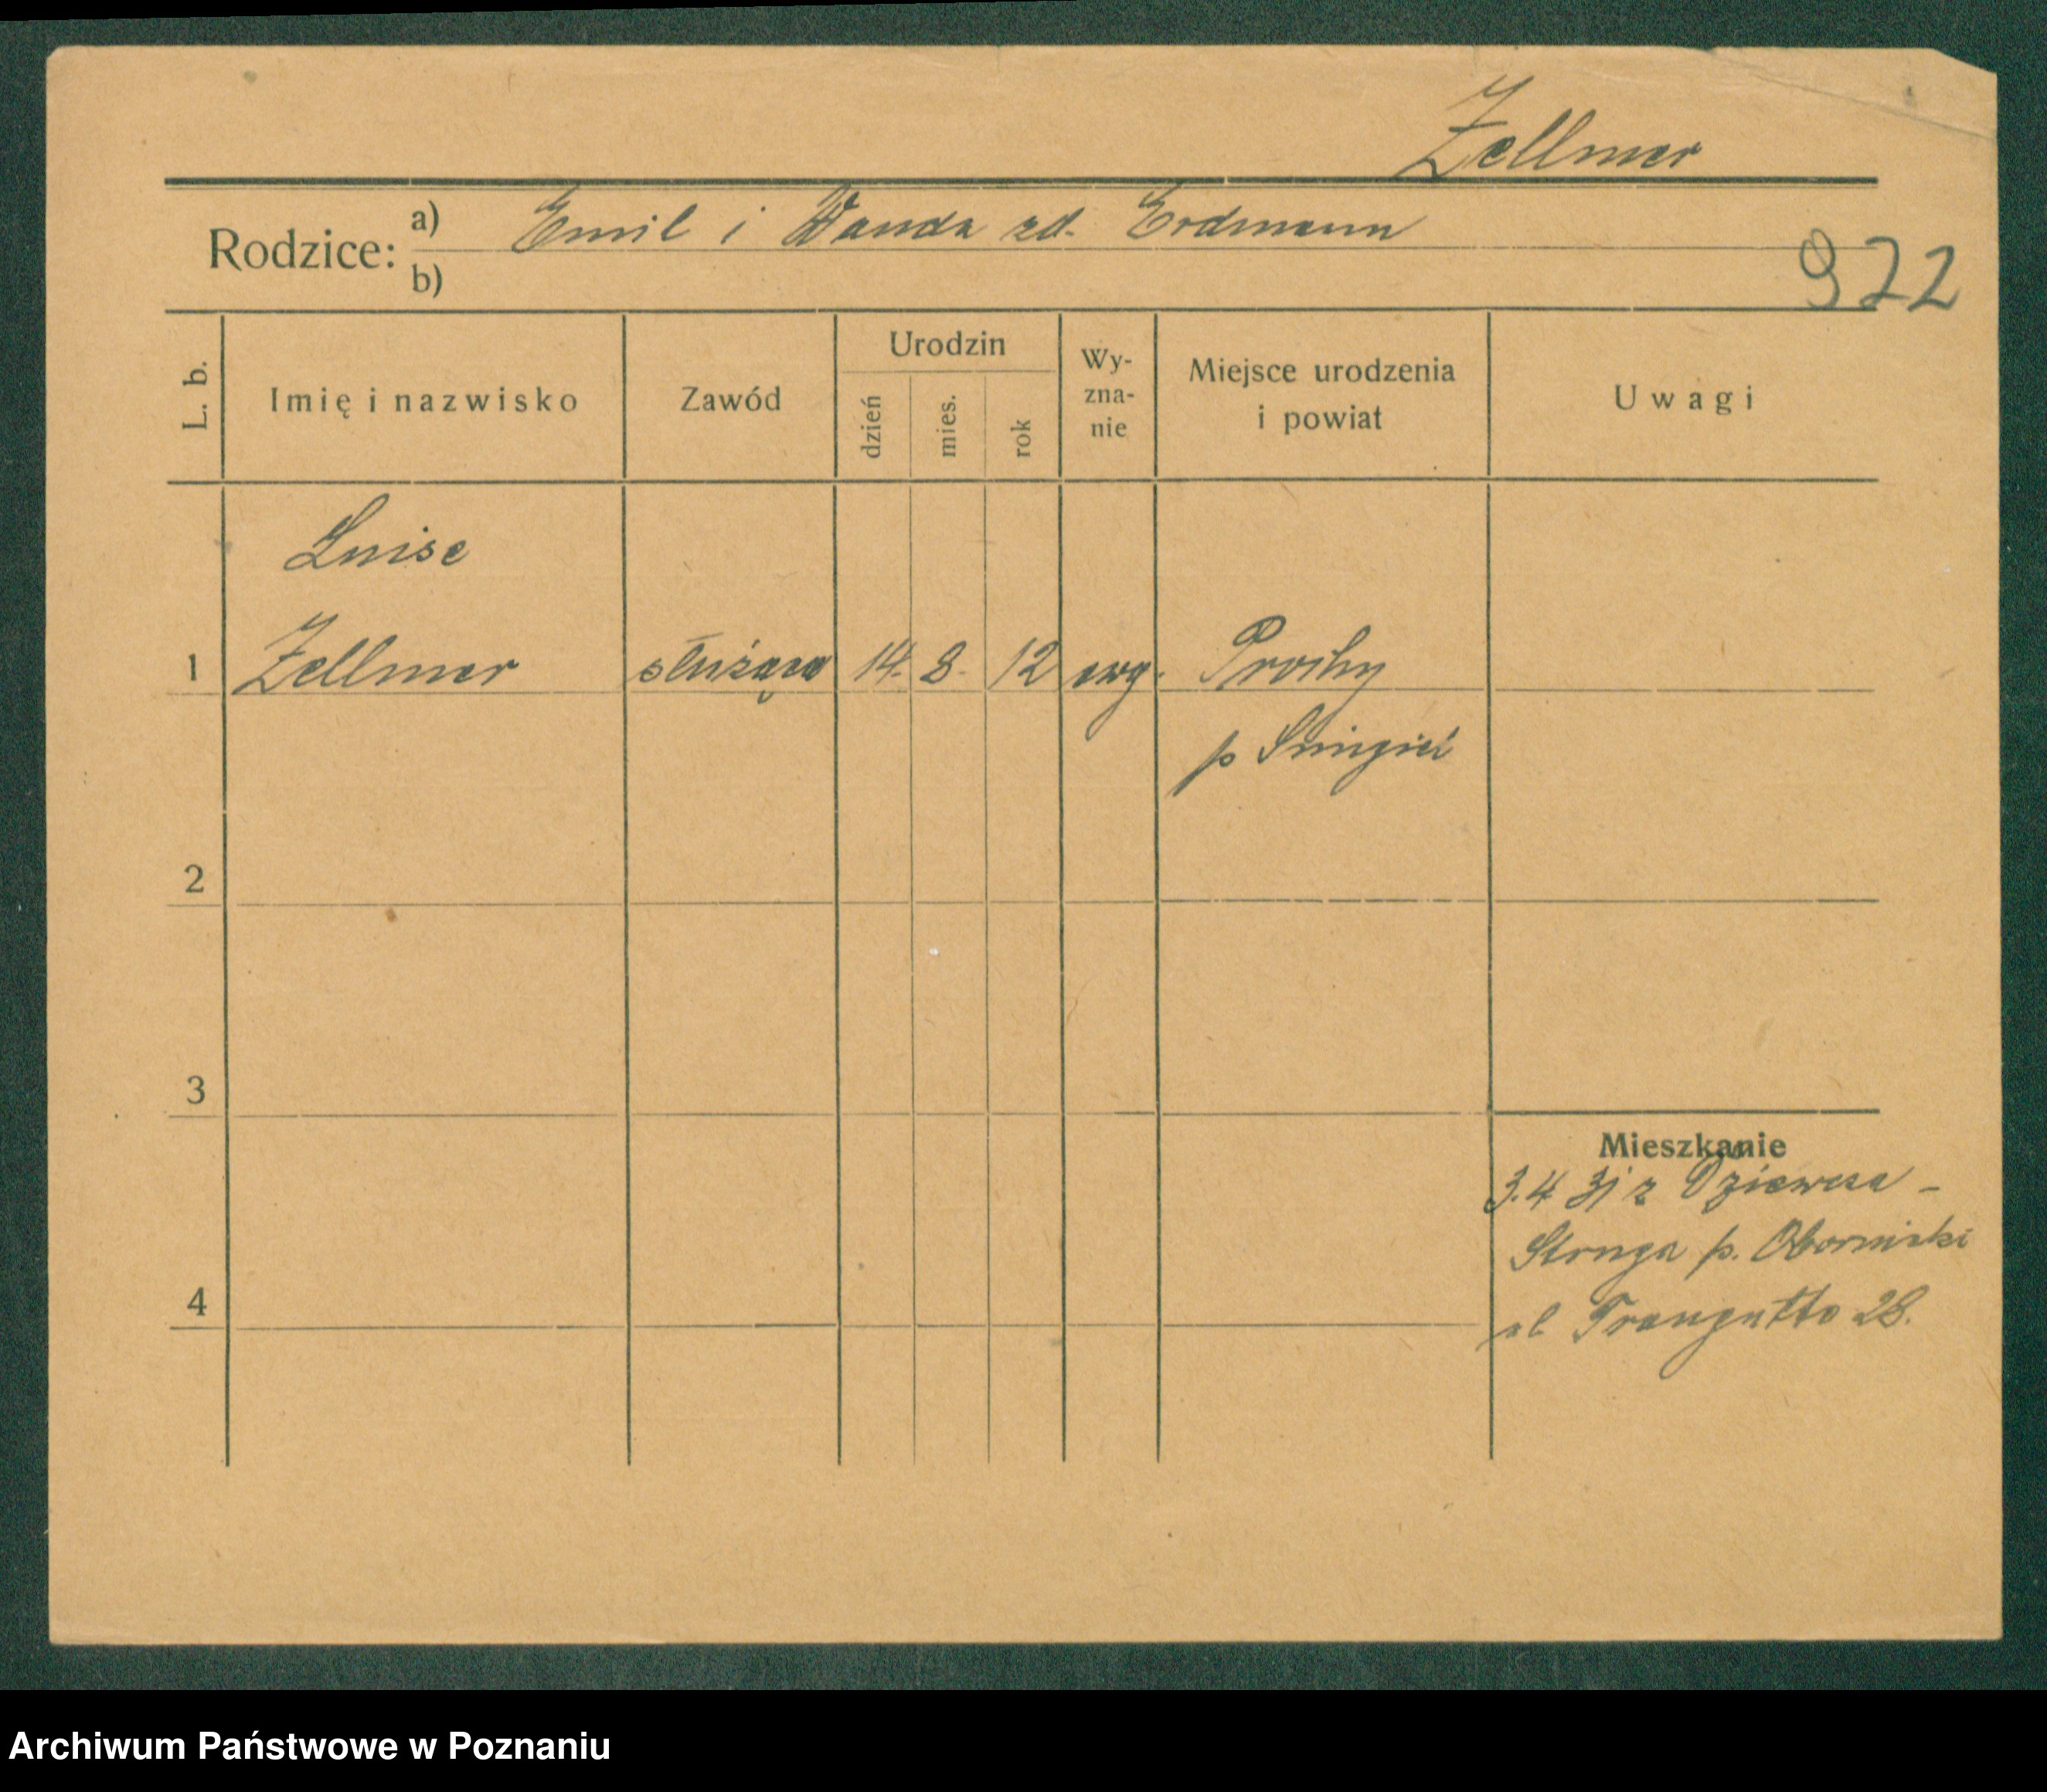 Zellmer
Rodzice: a) Emil i Wanda zd. Erdmann
b)
972
L. b.
Imię i nazwisko
Zawód
Urodzin
dzień mies. rok
Wy-
zna-
nie
Miejsce urodzenia
i powiat
Uwagi
Luise
1 Zellmer służąca 14. 8. 12 ewg.
p Śmigiel
2
3
4
Mieszkanie
3.4 31 z Dziewcza-
Struga p. Obornicki
ul Traugutta 28.
Archiwum Państwowe w Poznaniu